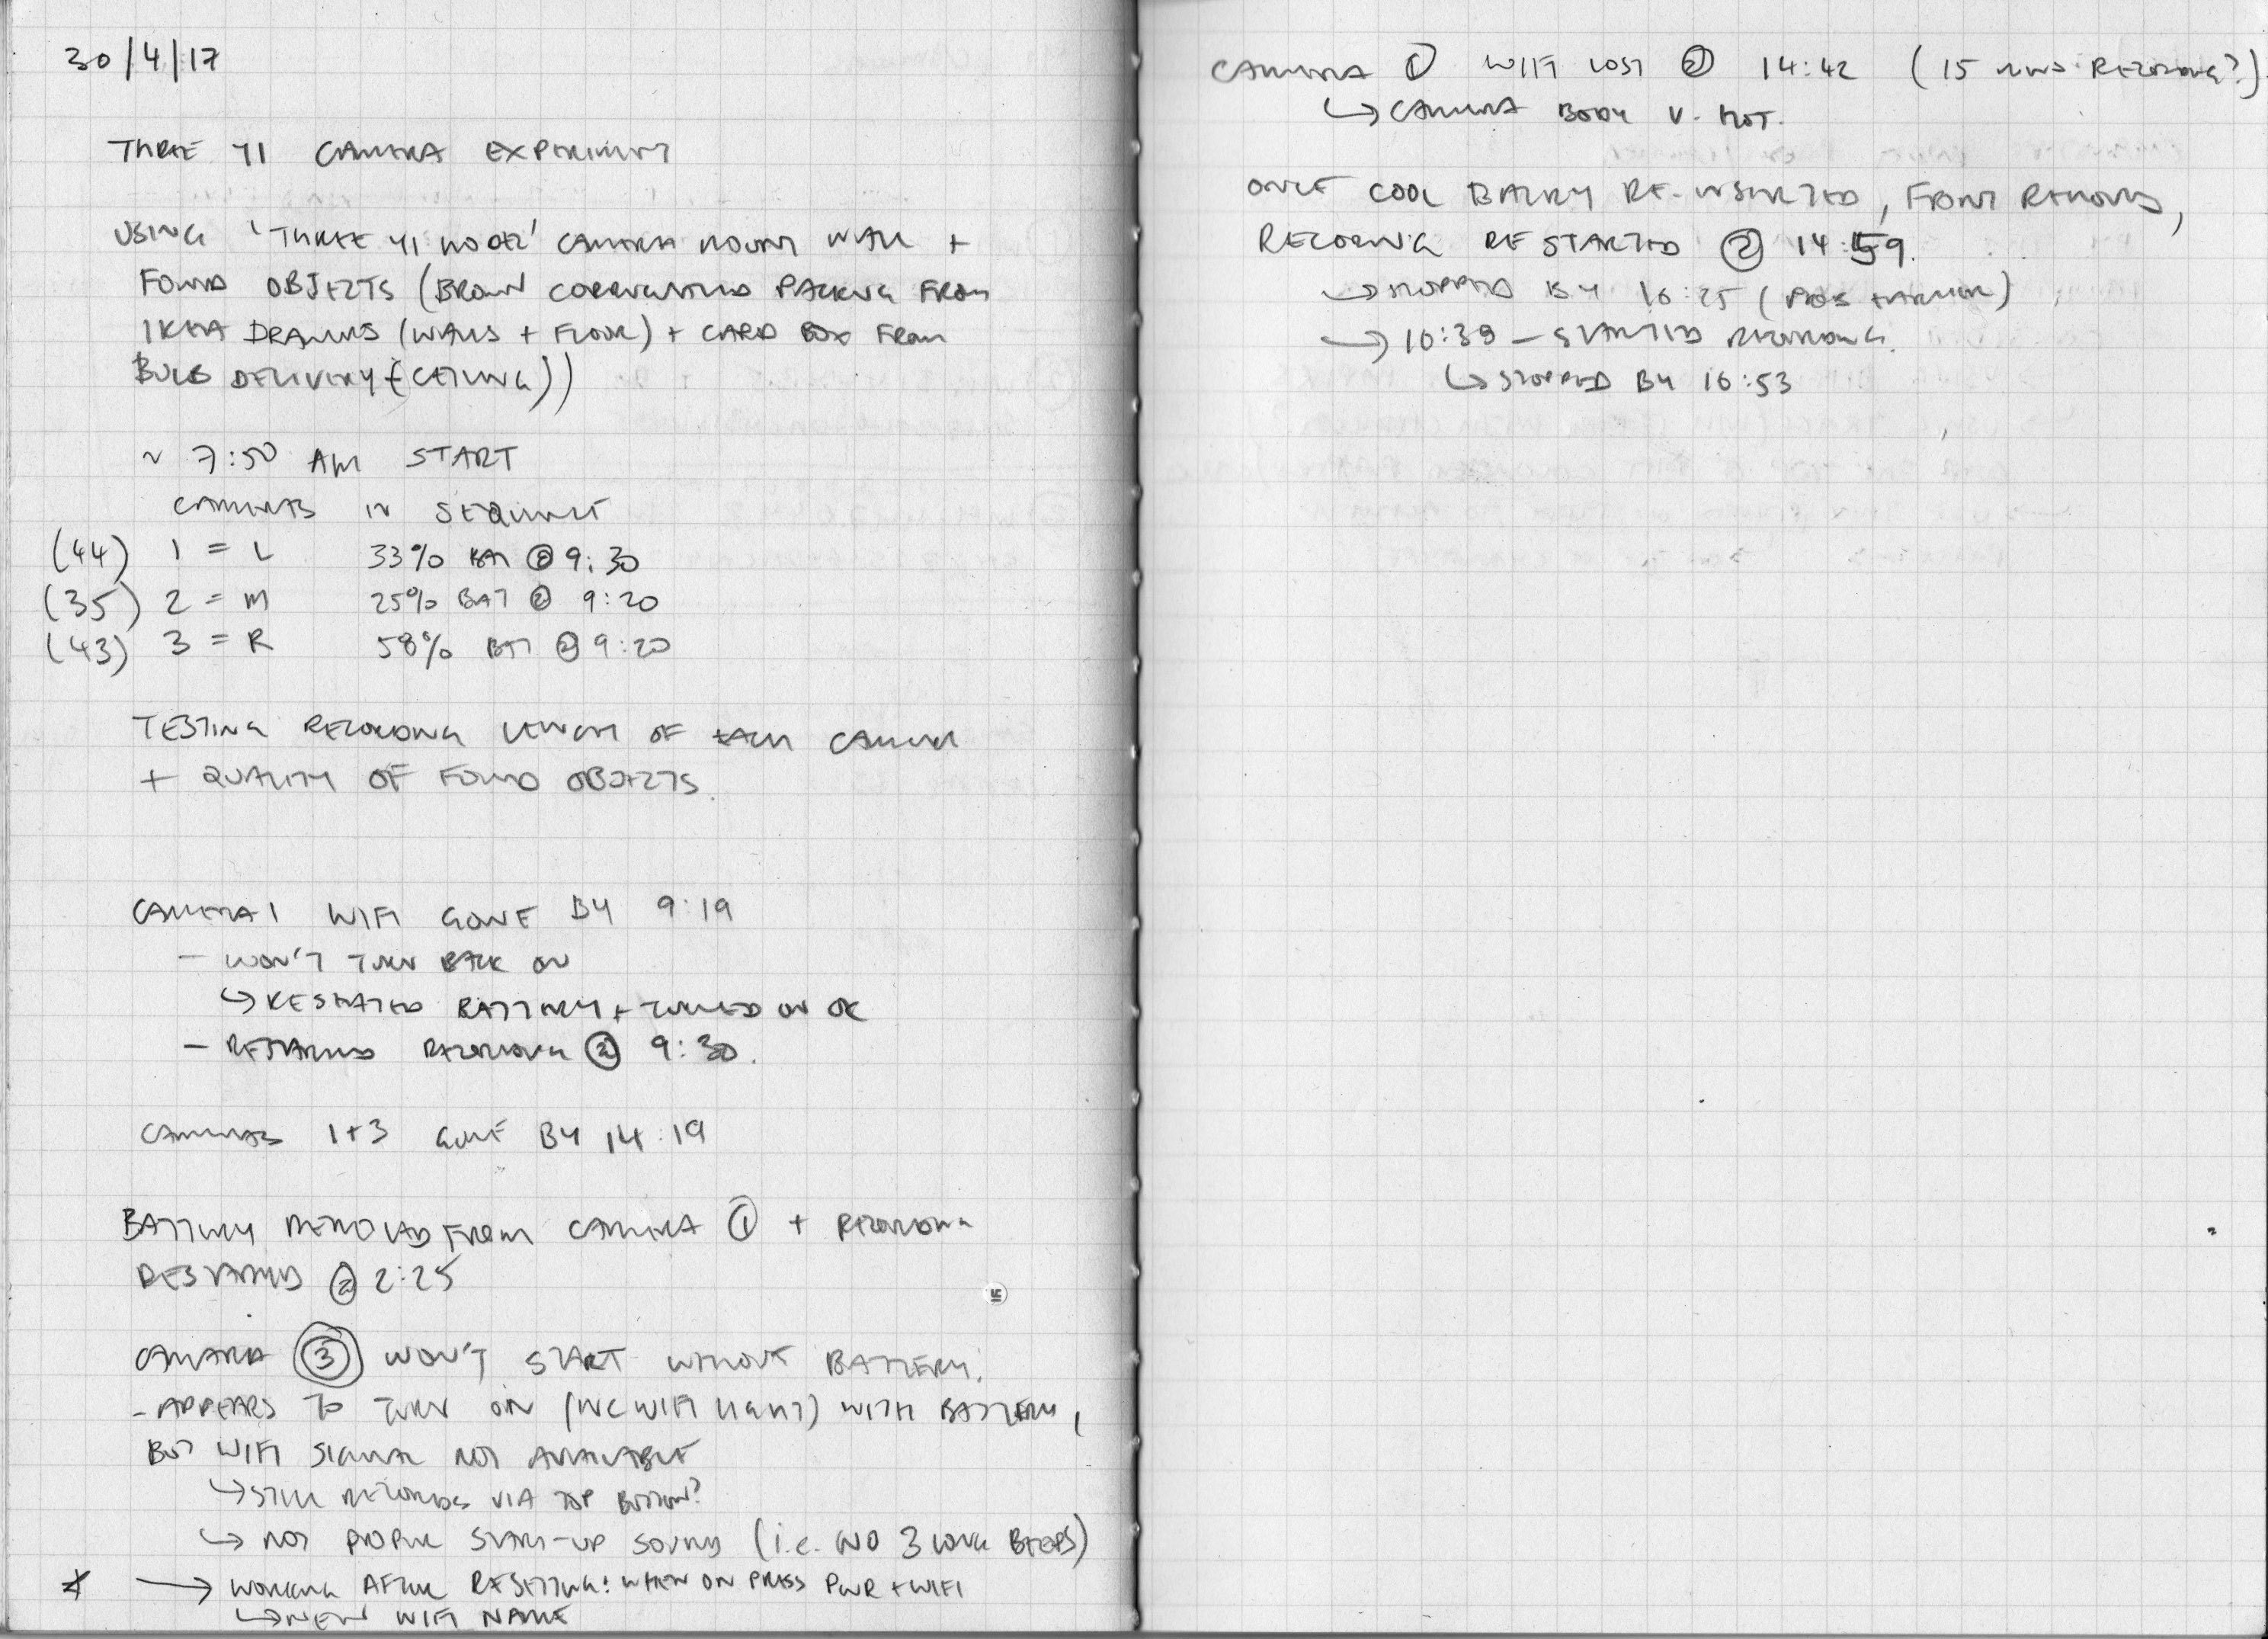 30/4/17
THREE YI CAMERA EXPERIMENT
USING 'THREE YI CAMERA MOUNT WALL +
FOUND OBJECTS (BROWN CORRUGATED PACKING FROM
IKEA DRAWERS (WALLS + FLOOR) + CARD BOX FROM
BULB DELIVERY (CEILING))
~ 7:50 AM START
CAMERAS IN SEQUENCE
(44) 1 = L 33% BAT @ 9:30
(35) 2 = M 25% BAT @ 9:20
(43) 3 = R 58% BAT @ 9:20
TESTING RECORDING LENGTH OF EACH CAMERA
+ QUALITY OF FOUND OBJECTS.
CAMERA 1 WIFI GONE BY 9:19
- WON'T TURN BACK ON
↳ RESEATED BATTERY + TURNED ON OK
- RESTARTED RECORDING @ 9:30.
CAMERAS 1+3 GONE BY 14:19
BATTERY REMOVED FROM CAMERA ① + RECORDING
RESTARTED @ 2:25
CAMERA ③ WON'T START WITHOUT BATTERY.
- APPEARS TO TURN ON (INC WIFI LIGHT) WITH BATTERY,
BUT WIFI SIGNAL NOT AVAILABLE
↳ STILL RECORDS VIA TOP BUTTON?
↳ NOT PROPER START-UP SOUNDS (i.e. NO 3 LONG BEEPS)
* → WORKING AFTER RESETTING: WHEN ON PRESS PWR + WIFI
↳ NEW WIFI NAME
CAMERA ① WIFI LOST @ 14:42 (15 MINS RECORDING?)
↳ CAMERA BODY V. HOT.
ONCE COOL BATTERY RE-INSERTED, FRONT REMOVED,
RECORDING RESTARTED @ 14:59.
↳ STOPPED BY 16:25 (POSS EARLIER)
→ 16:39 - STARTED RECORDING.
↳ STOPPED BY 16:53